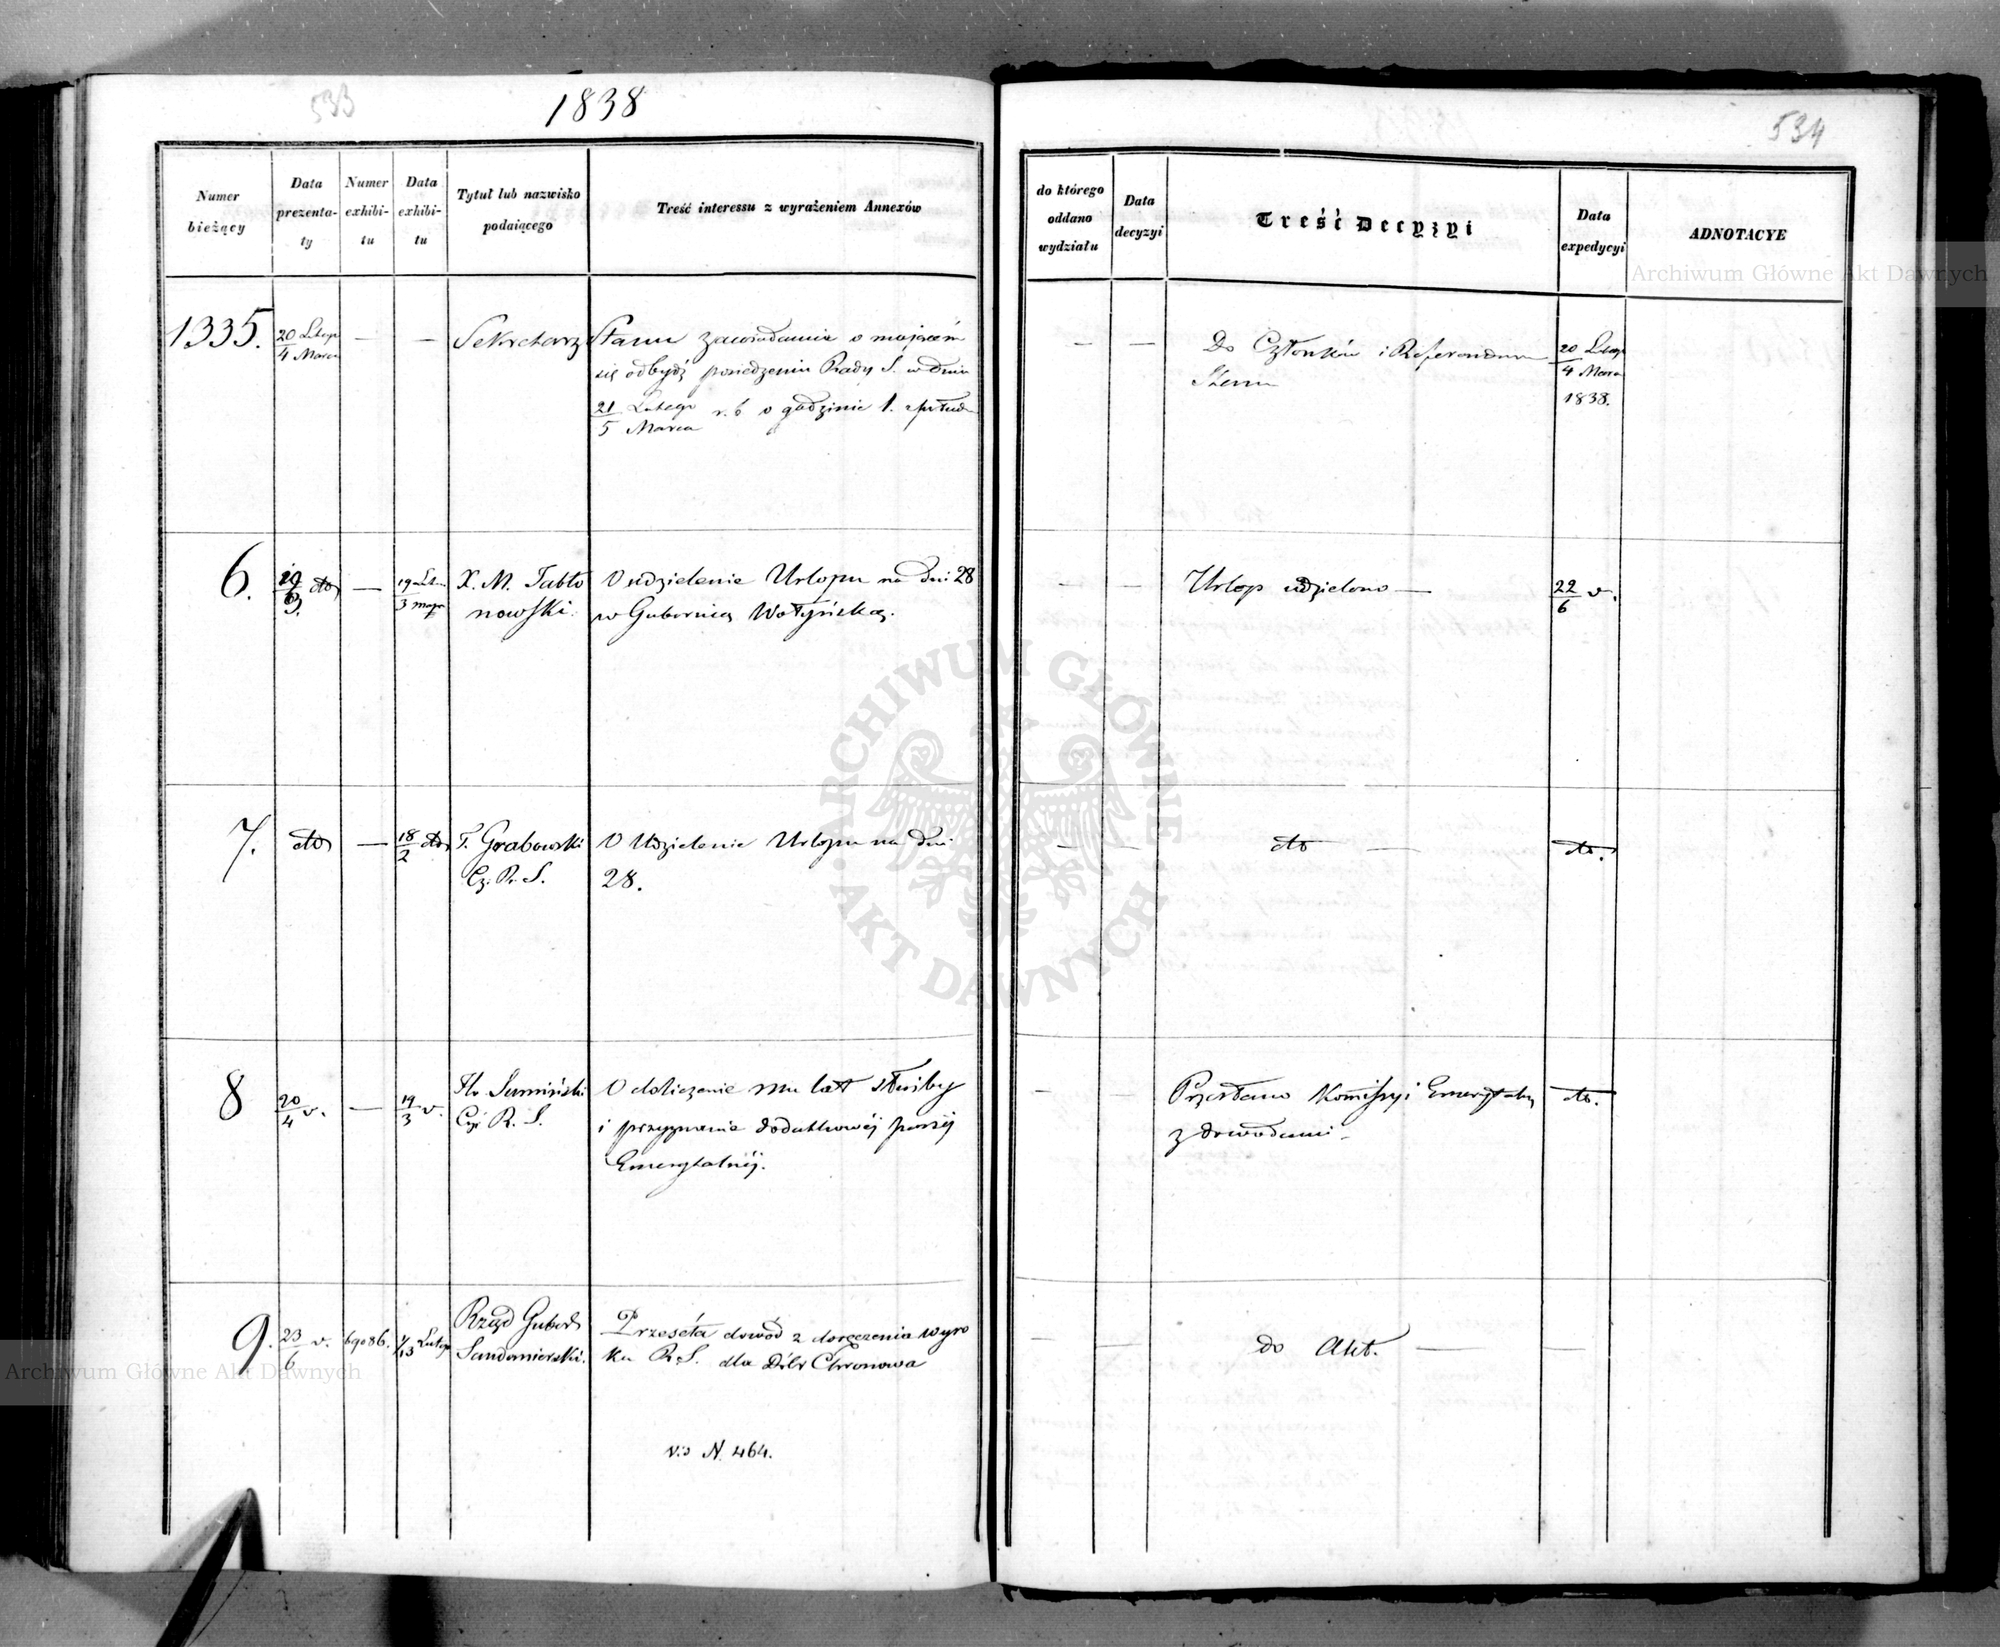 533
1838
Numer bieżący
Data prezentaty
Numer exhibitu
Data exhibitu
Tytuł lub nazwisko podaiącego
Treść interessu z wyrażeniem Annexów
1335.
20/4 Lutego Marca
—
—
Sekretarz Stanu zawiadamia o mającém
się odbydź posiedzeniu Rady S. w dniu
21/5 Lutego Marca r. b o godzinie 1. z połud
6.
dto
—
19/3
X. M. Jabło
nowski.
O udzielenie Urlopu na dni 28
w Gubernię Wołyńską.
7.
dto
—
18/2 dto
T. Grabowski
Cz. R. S.
O Udzielenie Urlopu na dni
28.
8
20/4 v.
—
19/3 v.
Sumiński
R. S.
O doliczenie mu lat służby
i przyznanie dodatkowéj pensÿi
Emerytalnéj.
9.
23/6 v.
69086.
1/13 Lutego
Rząd Gubers
Sandomierski.
Przeséła dowód z doręczenia wyro
ku R. S. dla Dóbr Chronowa
N. 464.
534
do którego oddano wydziału
Data decyzyi
Treść Decyzyi
Data expedycyi
ADNOTACYE
—
—
Do Członków i Referendarzy
Stanu
20/4 Lutego Marca
1838.
—
—
Urlop udzielono —
22/6 v.
—
—
dto —
dto.
—
—
Przesłano Komissyi Emerytalnéj
z dowodami
dto.
—
—
do Akt. —
—
Archiwum Główne Akt Dawnych
ARCHIWUM GŁÓWNE
AKT DAWNYCH
Archiwum Główne Akt Dawnych